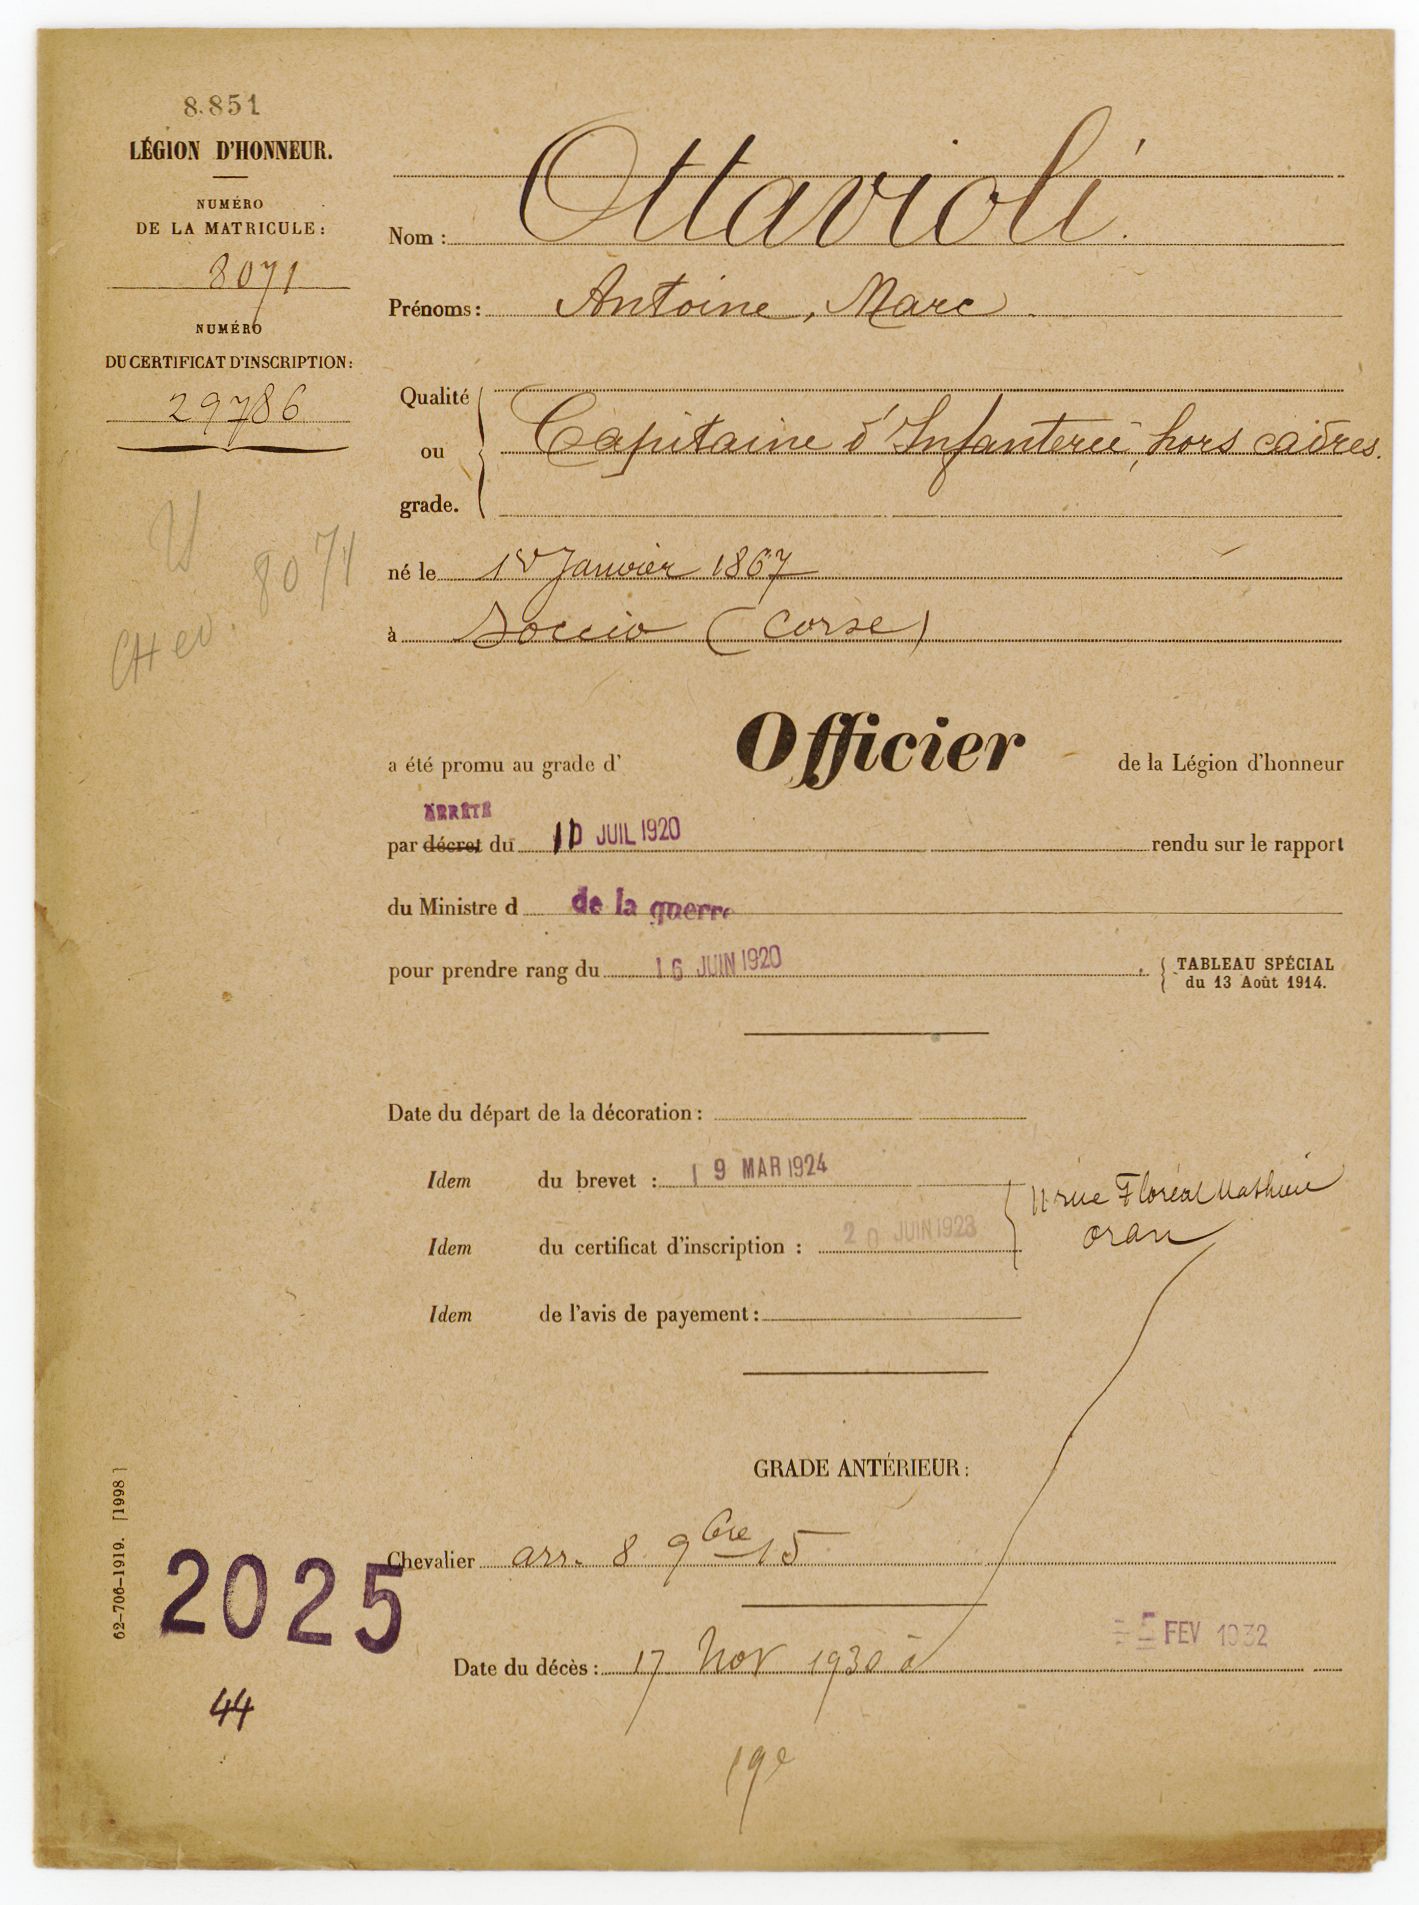 8.851
LÉGION D'HONNEUR.
NUMÉRO
DE LA MATRICULE:
8071
NUMÉRO
DU CERTIFICAT D'INSCRIPTION:
29786
8071
CHev.
Nom: Ottavioli
Prénoms: Antoine, Marc
Qualité
ou
grade.
Capitaine d'Infanterie, hors cadres.
né le 1er Janvier 1867
à Soccia (Corse)
a été promu au grade d' Officier de la Légion d'honneur
ARRÊTÉ
par décret du 10 JUIL 1920 rendu sur le rapport
du Ministre d de la guerre
pour prendre rang du 16 JUIN 1920 { TABLEAU SPÉCIAL
du 13 Août 1914.
Date du départ de la décoration:
Idem du brevet: 19 MAR 1924
Idem du certificat d'inscription: 20 JUIN 1923
11 rue Floréal Mathieu
Oran
Idem de l'avis de payement:
GRADE ANTÉRIEUR:
Chevalier arr. 8 9bre 15
Date du décès: 17 Nov 1930 à
5 FEV 1932
62-706-1919. [1998]
2025
44
19e